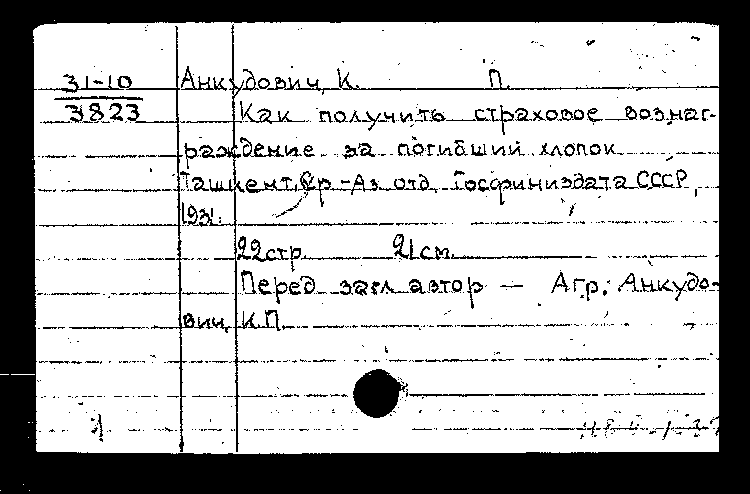 31-10 Анкудович, К. П.
3823 Как получить страховое вознаг-
раждение за погибший хлопок
Ташкент, Ср.-Аз. отд. Госфиниздата СССР,
1931.
22 стр. 21 см.
Перед загл. автор — Агр. Анкудо-
вич, К.П.